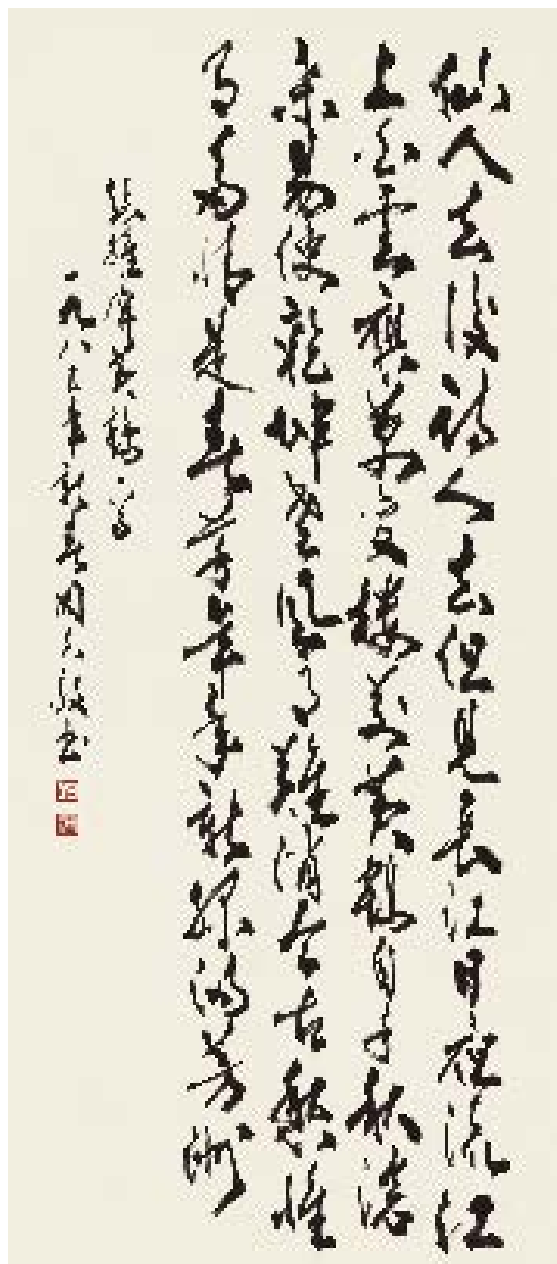 仙人去後詩人去但見長江日夜流江
上白雲應萬變樓前黃鶴自千秋滄
桑易使乾坤老風月難消今古愁惟
有多情是春草年年新綠滿芳洲
張維屏黃鶴
一九八年新春周書